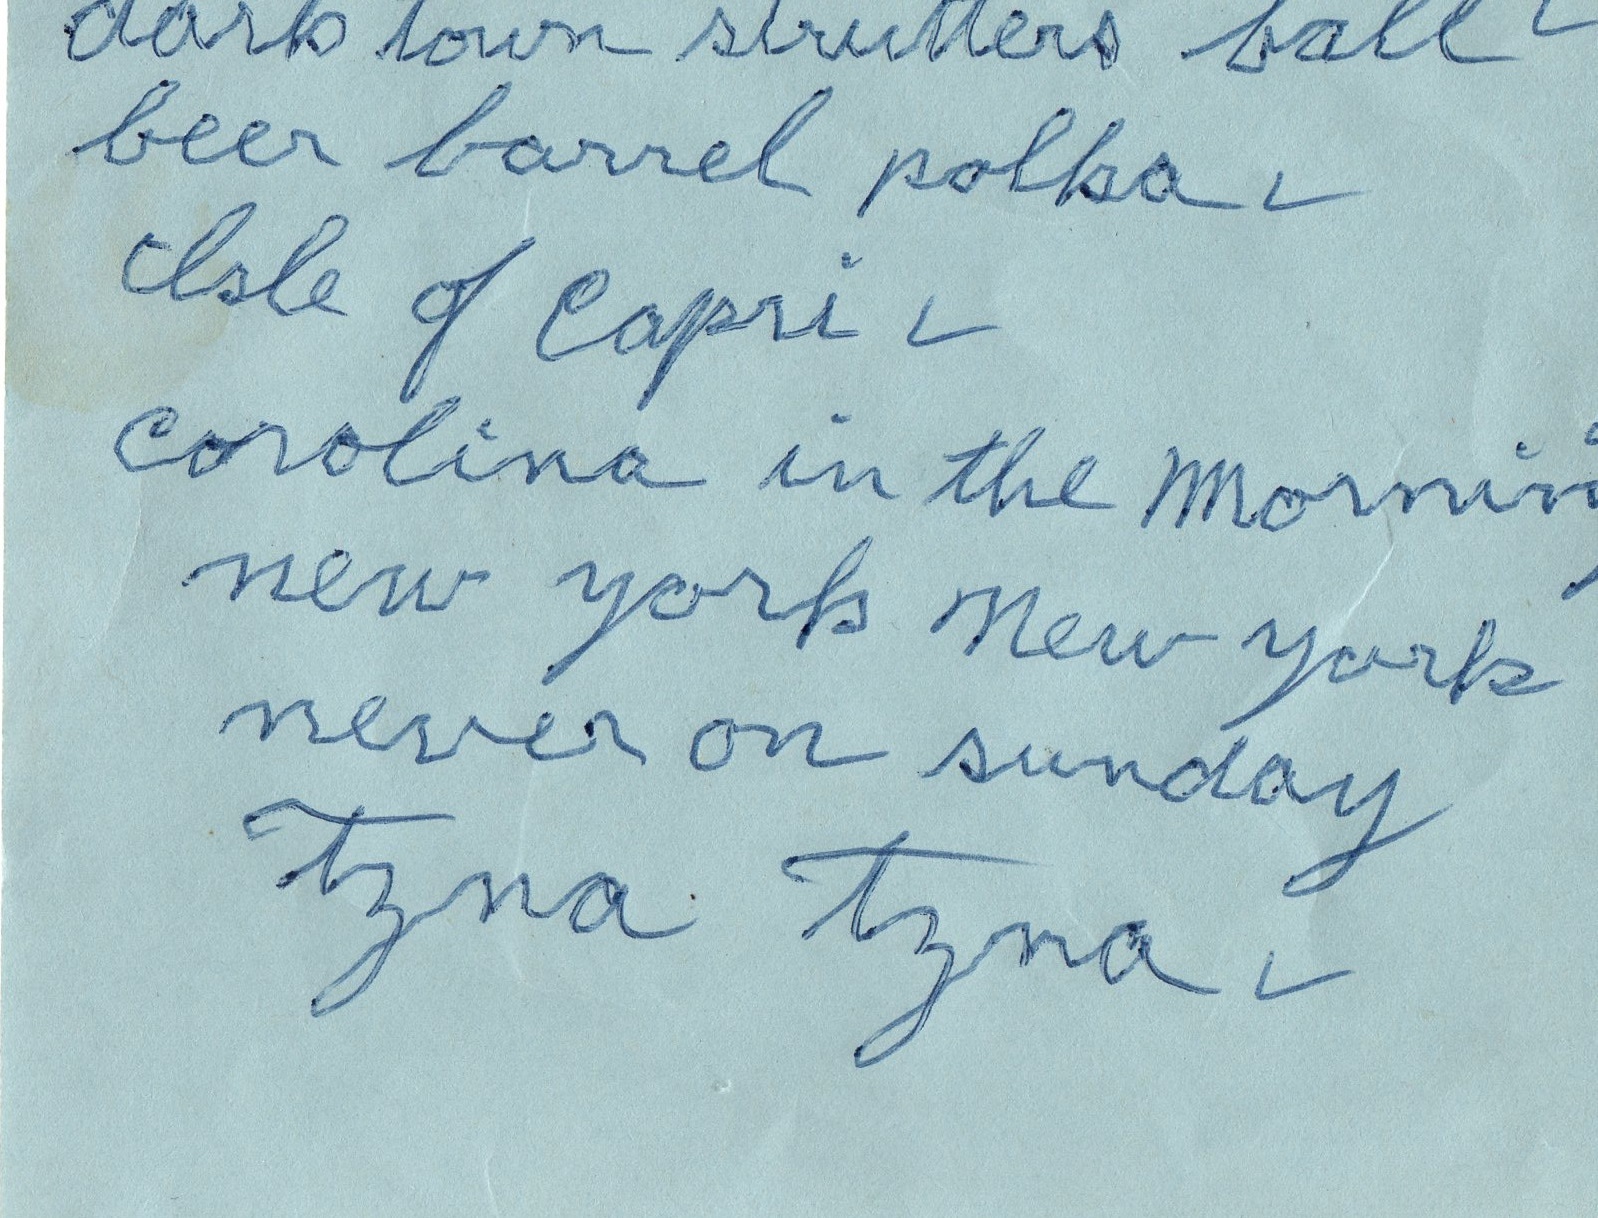 dark town strutters ball ✓
beer barrel polka ✓
Isle of Capri ✓
Carolina in the Morning
new york New york
never on sunday
Tzna Tzna ✓